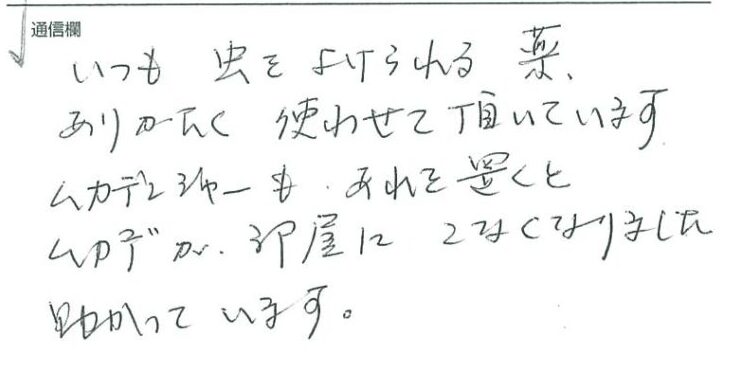 通信欄
いつも 虫を よけられる 薬、
ありがたく 使わせて頂いています
ムカデンジャーも、あれを置くと
ムカデが、部屋に こなくなりました
助かって います。